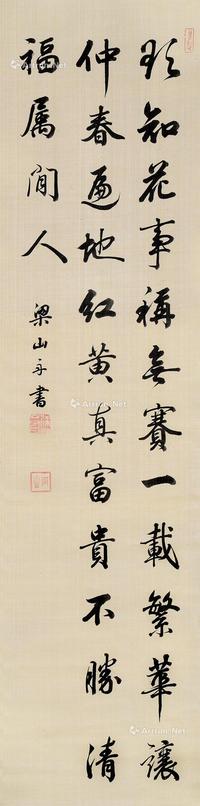 知花事稱無賽一載繁華讓
仲春遍地紅黃真富貴不勝清
福属閒人
梁山舟書